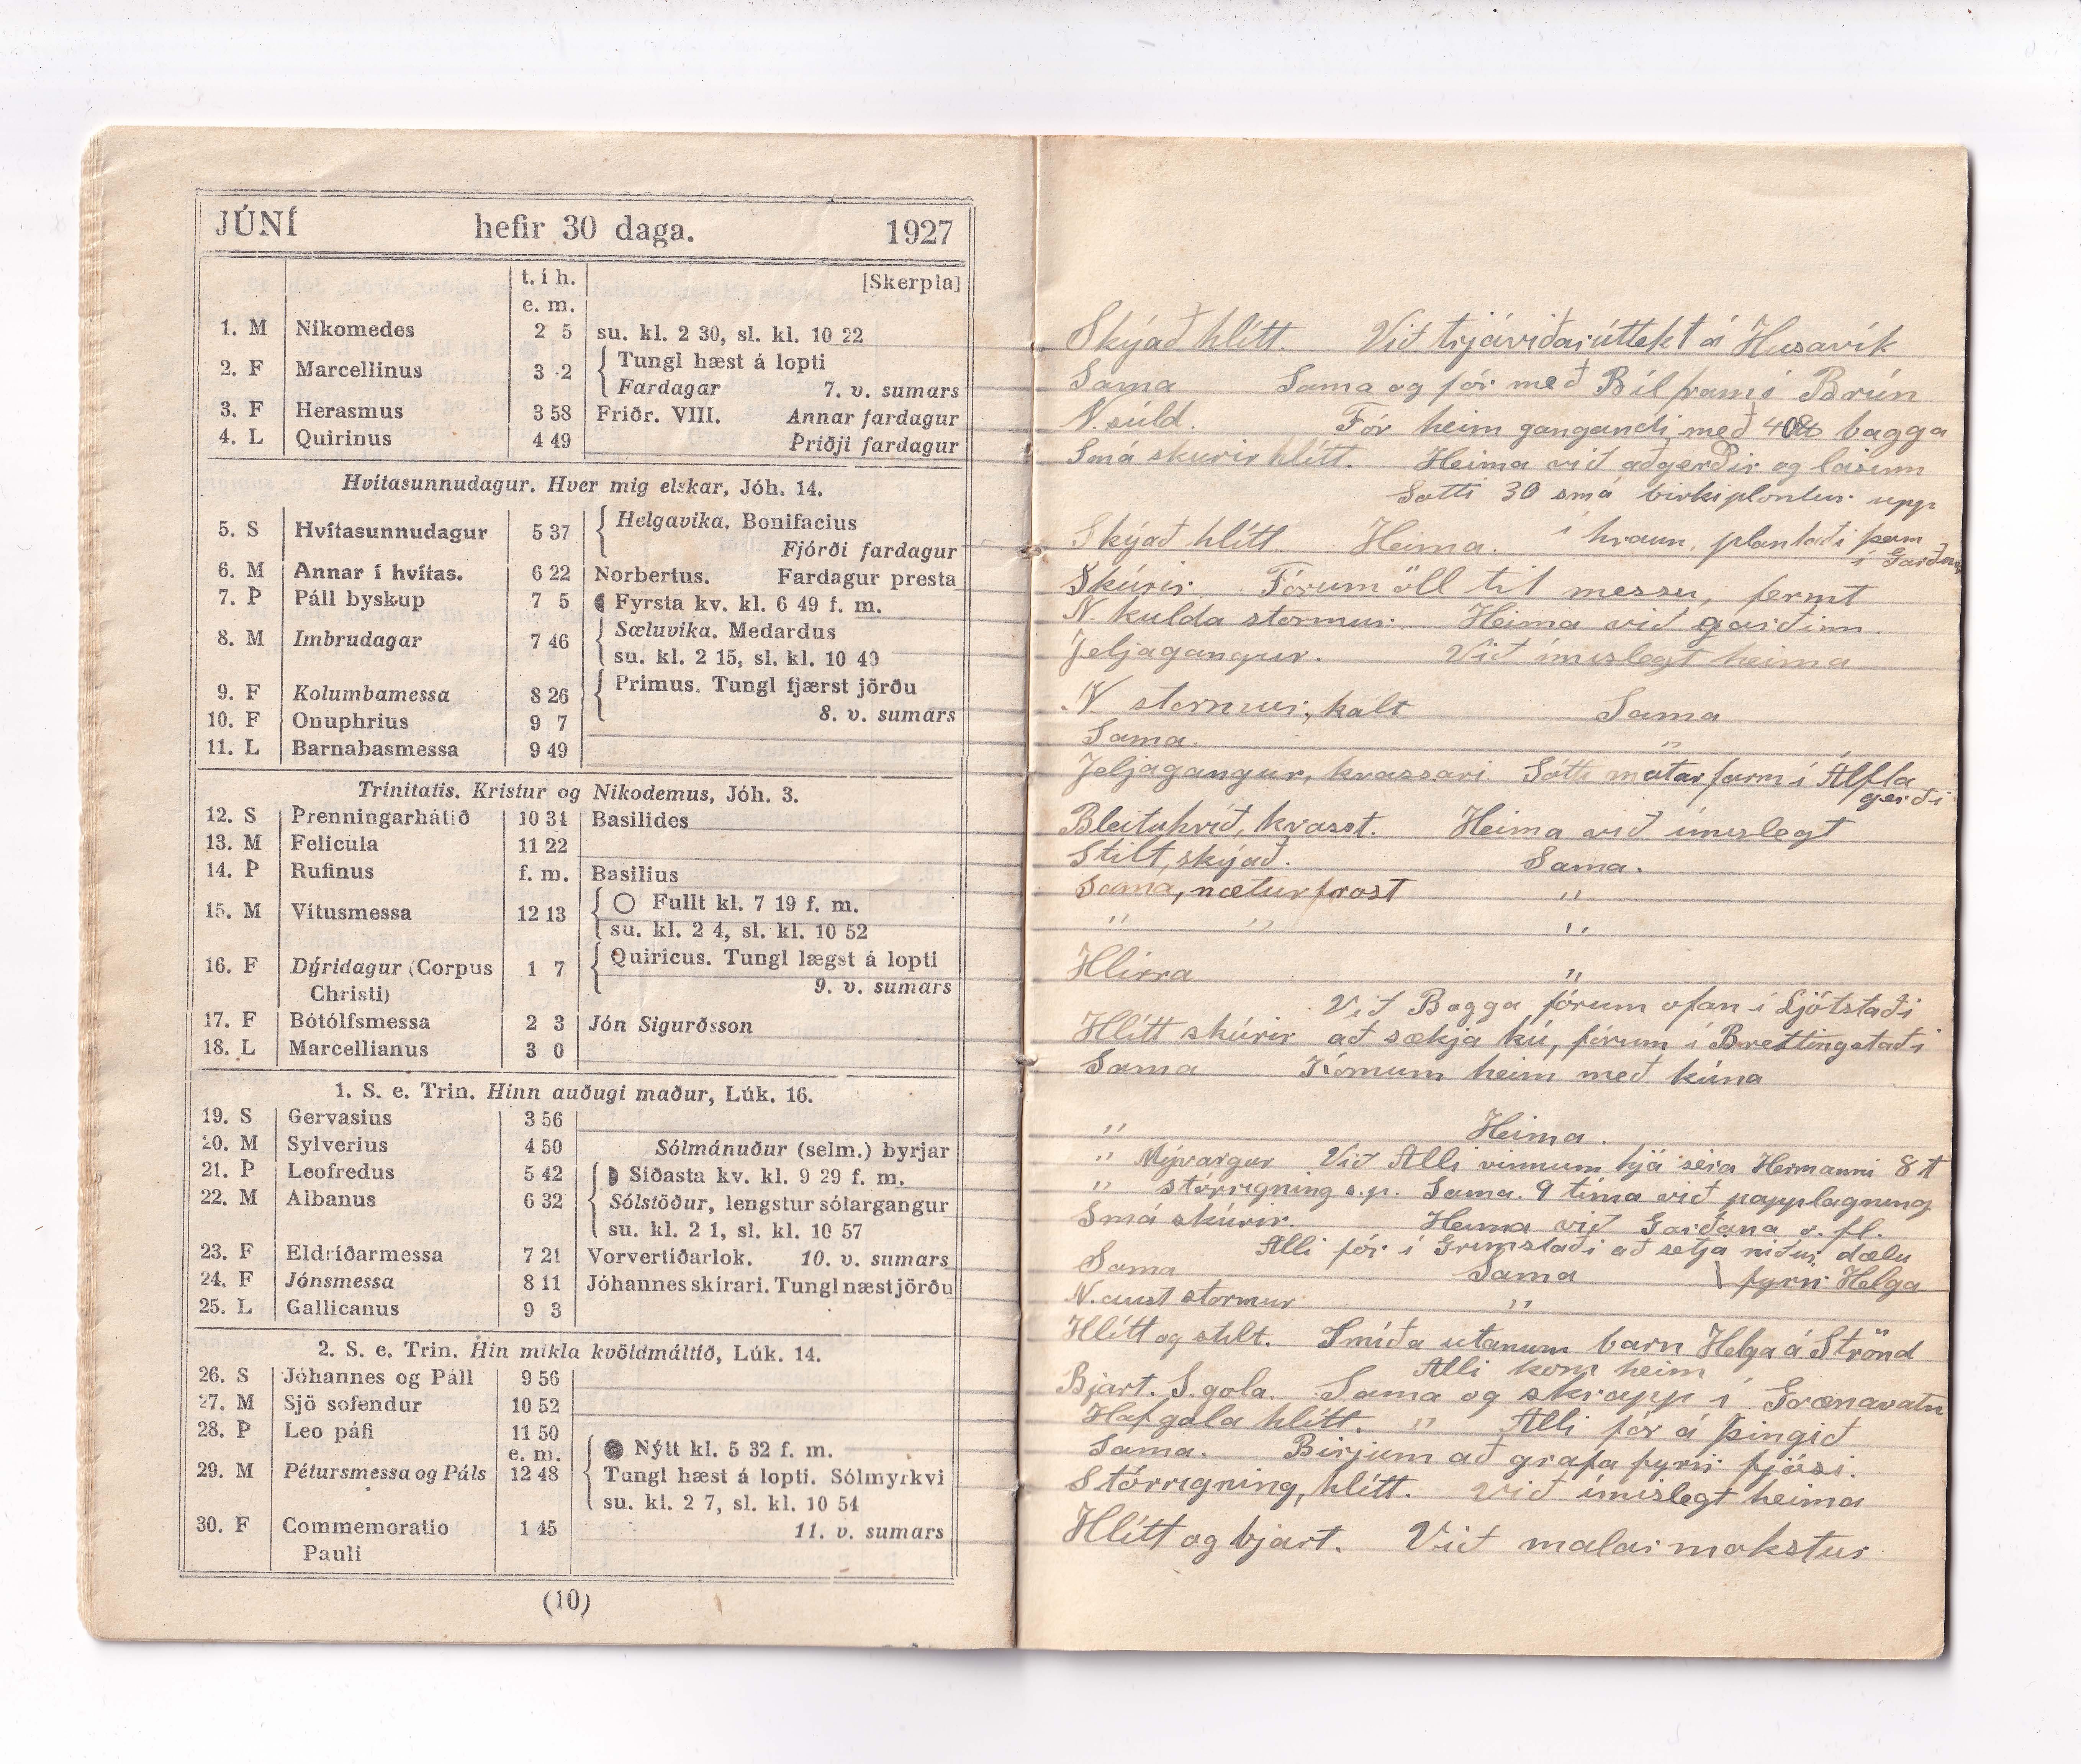 JÚNÍ hefir 30 daga. 1927
t. í h. [Skerpla]
e. m.
1. M Nikomedes 2 5 su. kl. 2 30, sl. kl. 10 22
2. F Marcellinus 3 2 Tungl hæst á lopti
Fardagar 7. v. sumars
3. F Herasmus 3 58 Friðr. VIII. Annar fardagur
4. L Quirinus 4 49 Þriðji fardagur
Hvítasunnudagur. Hver mig elskar, Jóh. 14.
5. S Hvítasunnudagur 5 37 Helgavika. Bonifacius
Fjórði fardagur
6. M Annar í hvítas. 6 22 Norbertus. Fardagur presta
7. Þ Páll byskup 7 5 Fyrsta kv. kl. 6 49 f. m.
8. M Imbrudagar 7 46 Sæluvika. Medardus
su. kl. 2 15, sl. kl. 10 40
9. F Kolumbamessa 8 26 Primus. Tungl fjærst jörðu
10. F Onuphrius 9 7 8. v. sumars
11. L Barnabasmessa 9 49
Trinitatis. Kristur og Nikodemus, Jóh. 3.
12. S Þrenningarhátíð 10 34 Basilides
13. M Felicula 11 22
14. Þ Rufinus f. m. Basilius
15. M Vítusmessa 12 13 Fullt kl. 7 19 f. m.
su. kl. 2 4, sl. kl. 10 52
16. F Dýridagur (Corpus 1 7 Quiricus. Tungl lægst á lopti
Christi) 9. v. sumars
17. F Bótólfsmessa 2 3 Jón Sigurðsson
18. L Marcellianus 3 0
1. S. e. Trin. Hinn auðugi maður, Lúk. 16.
19. S Gervasius 3 56
20. M Sylverius 4 50 Sólmánuður (selm.) byrjar
21. Þ Leofredus 5 42 Síðasta kv. kl. 9 29 f. m.
22. M Albanus 6 32 Sólstöður, lengstur sólargangur
su. kl. 2 1, sl. kl. 10 57
23. F Eldríðarmessa 7 21 Vorvertíðarlok. 10. v. sumars
24. F Jónsmessa 8 11 Jóhannes skírari. Tungl næst jörðu
25. L Gallicanus 9 3
2. S. e. Trin. Hin mikla kvöldmáltíð, Lúk. 14.
26. S Jóhannes og Páll 9 56
27. M Sjö sofendur 10 52
28. Þ Leo páfi 11 50
e. m. Nýtt kl. 5 32 f. m.
29. M Pétursmessa og Páls 12 48 Tungl hæst á lopti. Sólmyrkvi
su. kl. 2 7, sl. kl. 10 54
30. F Commemoratio 1 45 11. v. sumars
Pauli
(10)
Skýað hlítt. Við trjáviðarúttekt á Húsavík
Sama Sama og fór með Bíl fram í Brún
N. súld. Fór heim gangandi með 40 bagga
Smá skurir hlítt. Heima við aðgerðir og lasinn
Sótti 30 smá birkiplöntur upp
Skýað hlítt. Heima. í hraun, plantaði þem
í Garðinn
Skúrir. Fórum öll til messu, fermt
N. kulda stormur. Heima við garðinn
Jeljagangur. Við ímislegt heima
N stormur, kalt Sama
Sama. "
Jeljagangur, kvassari Sótti matarfarm í Álfta
gerði
Bleituhríð, kvasst. Heima við ímislegt
Stilt, skýað. Sama.
Sama, næturfrost "
" " "
Hlírra "
Við Bagga fórum ofan í Ljótstaði
Hlítt skúrir að sækja kú, fórum í Brettingstaði
Sama Komum heim með kúna
" Heima.
" Mývargur Við Alli vinnum hjá séra Hermanni 8 t
" stórrigning s.p. Sama. 9 tíma við papplagning
Smá skúrir. Heima við Garðana o. fl.
Alli fór í Grímstaði að setja niður dælu
Sama Sama fyrir Helga
N. aust stormur "
Hlítt og stilt. Smíða utanum barn Helga á Strönd
Alli kom heim
Bjart. S. gola. Sama og skrapp í Grænavatn
Hafgola hlítt. " Alli fór á Þingið
Sama. Birjum að grafa fyrir fjósi.
Stórrigning, hlítt. Við ímislegt heima
Hlítt og bjart. Við malarmokstur